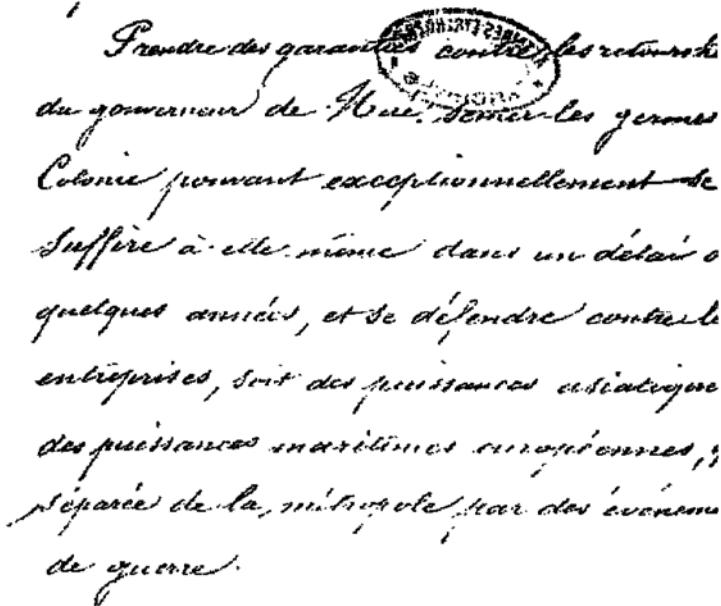 Prendre des garanties contre les retours
du gouverneur de Hué. Semer les germes
Colonie pouvant exceptionnellement se
suffire à elle-même dans un délai
quelques années, et se défendre contre le
entreprises, soit des puissances asiatique
des puissances maritimes européennes,
séparée de la métropole par des évènem
de guerre.